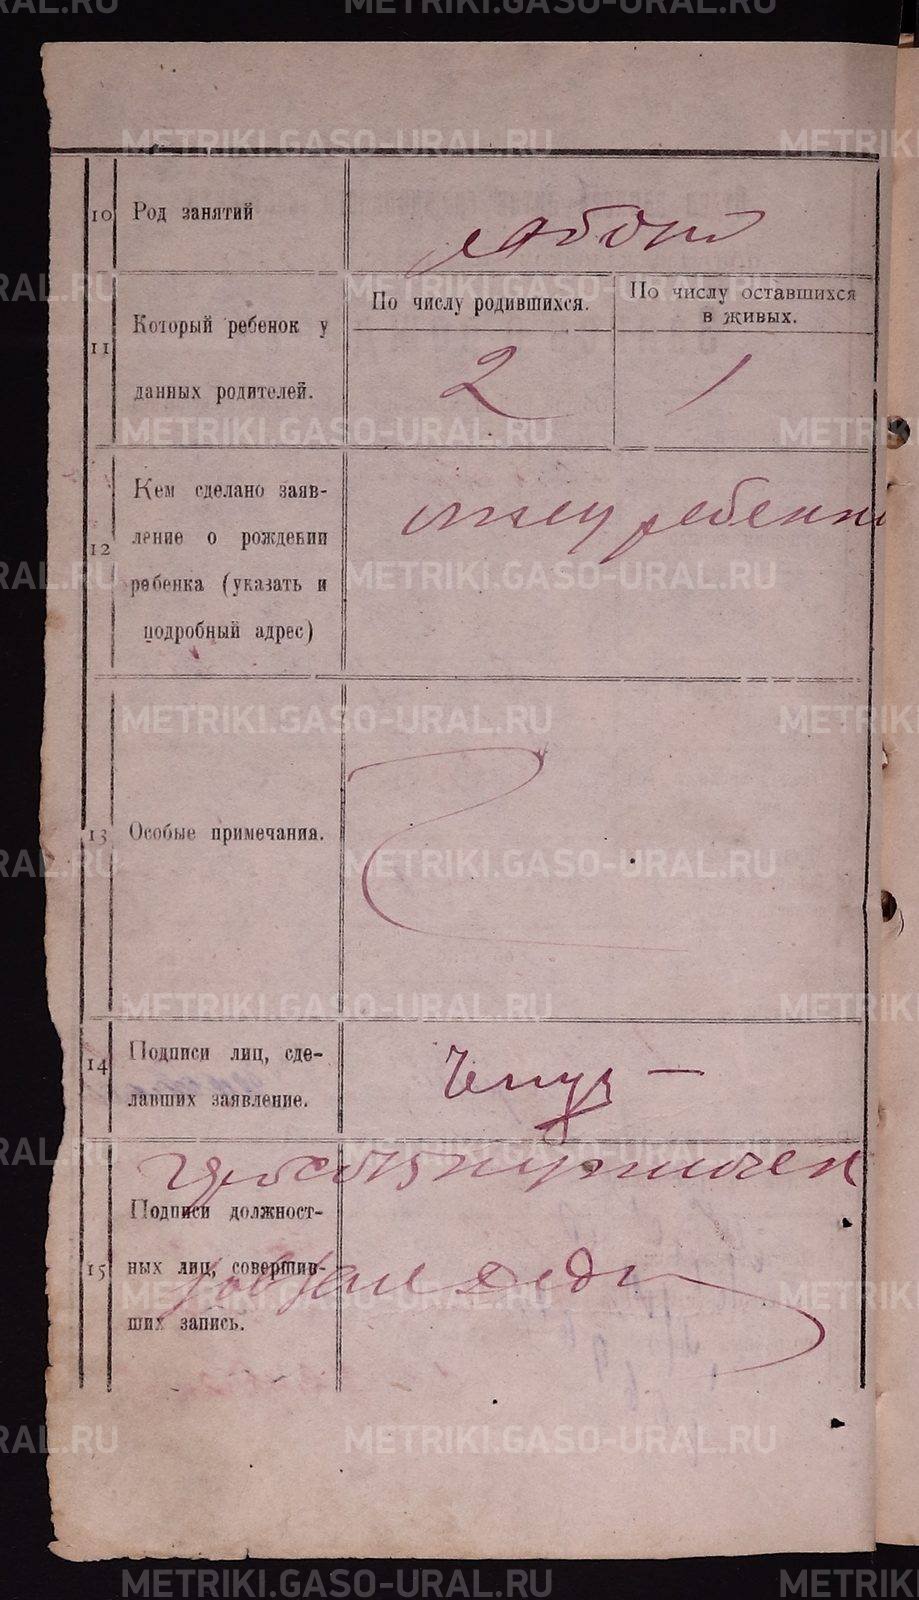 METRIKI.GASO-URAL.RU
10 Род занятий
11 Который ребенок у
данных родителей.
По числу родившихся.
По числу оставшихся
в живых.
2
1
12 Кем сделано заяв-
ление о рождении
ребенка (указать и
подробный адрес)
отец ребенка
13 Особые примечания.
14 Подписи лиц, сде-
лавших заявление.
15 Подписи должност-
ных лиц, совершив-
ших запись.